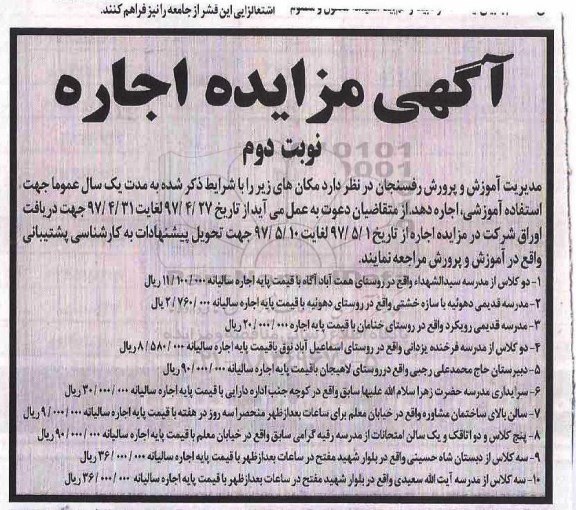 اشتغالزایی این قشر از جامعه را نیز فراهم کنند.
آگهی مزایده اجاره
نوبت دوم
مدیریت آموزش و پرورش رفسنجان در نظر دارد مکان های زیر را با شرایط ذکر شده به مدت یک سال عموما جهت
استفاده آموزشی، اجاره دهد. از متقاضیان دعوت به عمل می آید از تاریخ ۹۷/۴/۲۷ لغایت ۹۷/۴/۳۱ جهت دریافت
اوراق شرکت در مزایده اجاره از تاریخ ۹۷/۵/۱ لغایت ۹۷/۵/۱۰ جهت تحویل پیشنهادات به کارشناسی پشتیبانی
واقع در آموزش و پرورش مراجعه نمایند.
۱- دو کلاس از مدرسه سیدالشهداء واقع در روستای همت آباد آگاه با قیمت پایه اجاره سالیانه ۱۱/۱۰۰/۰۰۰ ریال
۲- مدرسه قدیمی دهوئیه با سازه خشتی واقع در روستای دهوئیه با قیمت پایه اجاره سالیانه ۲/۷۶۰/۰۰۰ ریال
۳- مدرسه قدیمی رویکرد واقع در روستای خنامان با قیمت پایه اجاره ۲۰/۰۰۰/۰۰۰ ریال
۴- دو کلاس از مدرسه فرخنده یزدانی واقع در روستای اسماعیل آباد نوق باقیمت پایه اجاره سالیانه ۸/۵۸۰/۰۰۰ ریال
۵- دبیرستان حاج محمدعلی رجبی واقع درروستای لاهیجان باقیمت پایه اجاره سالیانه ۹۰/۰۰۰/۰۰۰ ریال
۶- سرایداری مدرسه حضرت زهرا سلام الله علیها سابق واقع در کوچه جنب اداره دارایی با قیمت پایه اجاره سالیانه ۳۰/۰۰۰/۰۰۰ ریال
۷- سالن بالای ساختمان مشاوره واقع در خیابان معلم برای ساعات بعدازظهر منحصرا سه روز در هفته با قیمت پایه اجاره سالیانه ۹/۰۰۰/۰۰۰ ریال
۸- پنج کلاس و دو اتاقک و یک سالن امتحانات از مدرسه رقیه گرامی سابق واقع در خیابان معلم با قیمت پایه اجاره سالیانه ۹۰/۰۰۰/۰۰۰ ریال
۹- سه کلاس از دبستان شاه حسینی واقع در بلوار شهید مفتح در ساعات بعدازظهر با قیمت پایه اجاره سالیانه ۳۶/۰۰۰/۰۰۰ ریال
۱۰- سه کلاس از مدرسه آیت الله سعیدی واقع در بلوار شهید مفتح در ساعات بعدازظهر با قیمت پایه اجاره سالیانه ۳۶/۰۰۰/۰۰۰ ریال